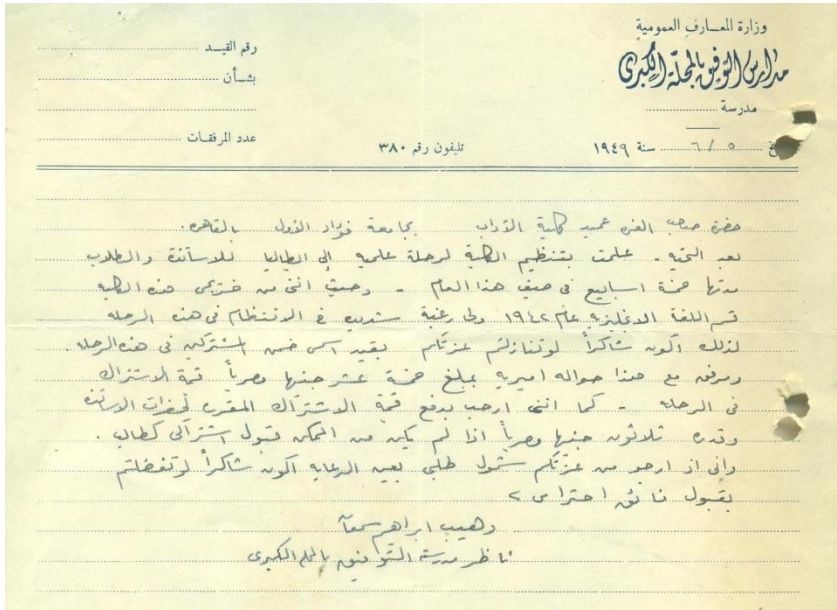 وزارة المعارف العمومية
مدارس التوفيق بالمحلة الكبرى
مدرسة
رقم القيد
بشأن
عدد المرفقات
تليفون رقم ٣٨٠
٥ / ٦ سنة ١٩٤٩
حضرة صاحب العزه عميد كلية الآداب بجامعة فؤاد الأول بالقاهره.
بعد التحيه - علمت بتنظيم الكلية لرحلة علميه إلى ايطاليا للاساتذة والطلاب
مدتها خمسة اسابيع فى صيف هذا العام - وحيث اننى من خريجى هذه الكليه
قسم اللغة الانجليزيه عام ١٩٤٢ ولى رغبة شديده فى الانتظام فى هذه الرحله
لذلك اكون شاكراً لو تنازلتم عزتكم بقيد اسمى ضمن المشتركين فى هذه الرحله.
ومرفق مع هذا حواله اميريه بمبلغ خمسة عشر جنيها مصرياً قيمة الاشتراك
فى الرحله - كما اننى ارحب بدفع قيمة الاشتراك المقرره لحضرات الاساتذه
وقدره ثلاثون جنيها مصرياً اذا لم يكن من الممكن قبول اشتراكى كطالب.
وانى اذ ارجو من عزتكم شمول طلبى بعين الرعايه اكون شاكراً لو تفضلتم
بقبول فائق احترامى
وهيب ابراهيم سمعان
ناظر مدرسة التوفيق بالمحله الكبرى